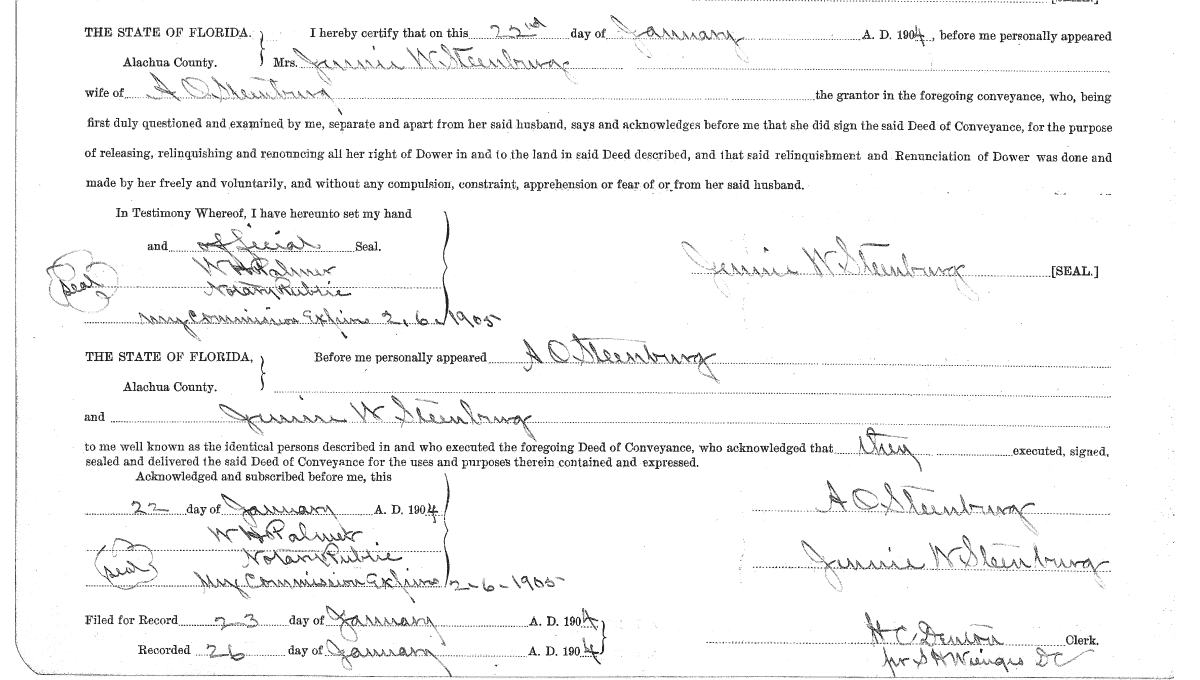 THE STATE OF FLORIDA. I hereby certify that on this 22nd day of January A. D. 1904, before me personally appeared
Alachua County. Mrs. Jennie W. Steenburg
wife of A O Steenburg the grantor in the foregoing conveyance, who, being
first duly questioned and examined by me, separate and apart from her said husband, says and acknowledges before me that she did sign the said Deed of Conveyance, for the purpose
of releasing, relinquishing and renouncing all her right of Dower in and to the land in said Deed described, and that said relinquishment and Renunciation of Dower was done and
made by her freely and voluntarily, and without any compulsion, constraint, apprehension or fear of or from her said husband.
In Testimony Whereof, I have hereunto set my hand
and official Seal.
W H Palmer
Jennie W Steenburg [SEAL.]
Seal
Notary Public
My Commission Expires 2, 6, 1905
THE STATE OF FLORIDA, Before me personally appeared A O Steenburg
Alachua County.
and Jennie W Steenburg
to me well known as the identical persons described in and who executed the foregoing Deed of Conveyance, who acknowledged that they executed, signed,
sealed and delivered the said Deed of Conveyance for the uses and purposes therein contained and expressed.
Acknowledged and subscribed before me, this
22 day of January A. D. 1904
A O Steenburg
W H Palmer
Notary Public
Seal
Jennie W Steenburg
My Commission Expires 2-6-1905
Filed for Record 23 day of January A. D. 1904
H C Denton Clerk.
Recorded 26 day of January A. D. 1904
per S H Wienges DC